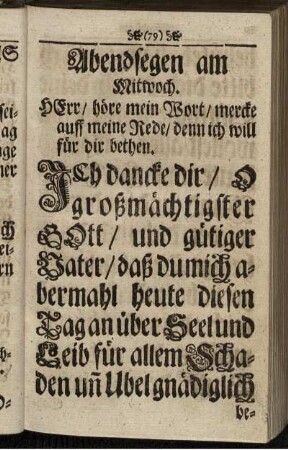 (79)
Abendsegen am
Mitwoch.
HErr / höre mein Wort / mercke
auff meine Rede / denn ich will
für dir bethen.
ICh dancke dir / O
großmächtigster
GOtt / und gütiger
Vater / daß du mich a-
bermahl heute diesen
Tag an über Seel und
Leib für allem Scha-
den uñ Ubel gnädiglich
be-